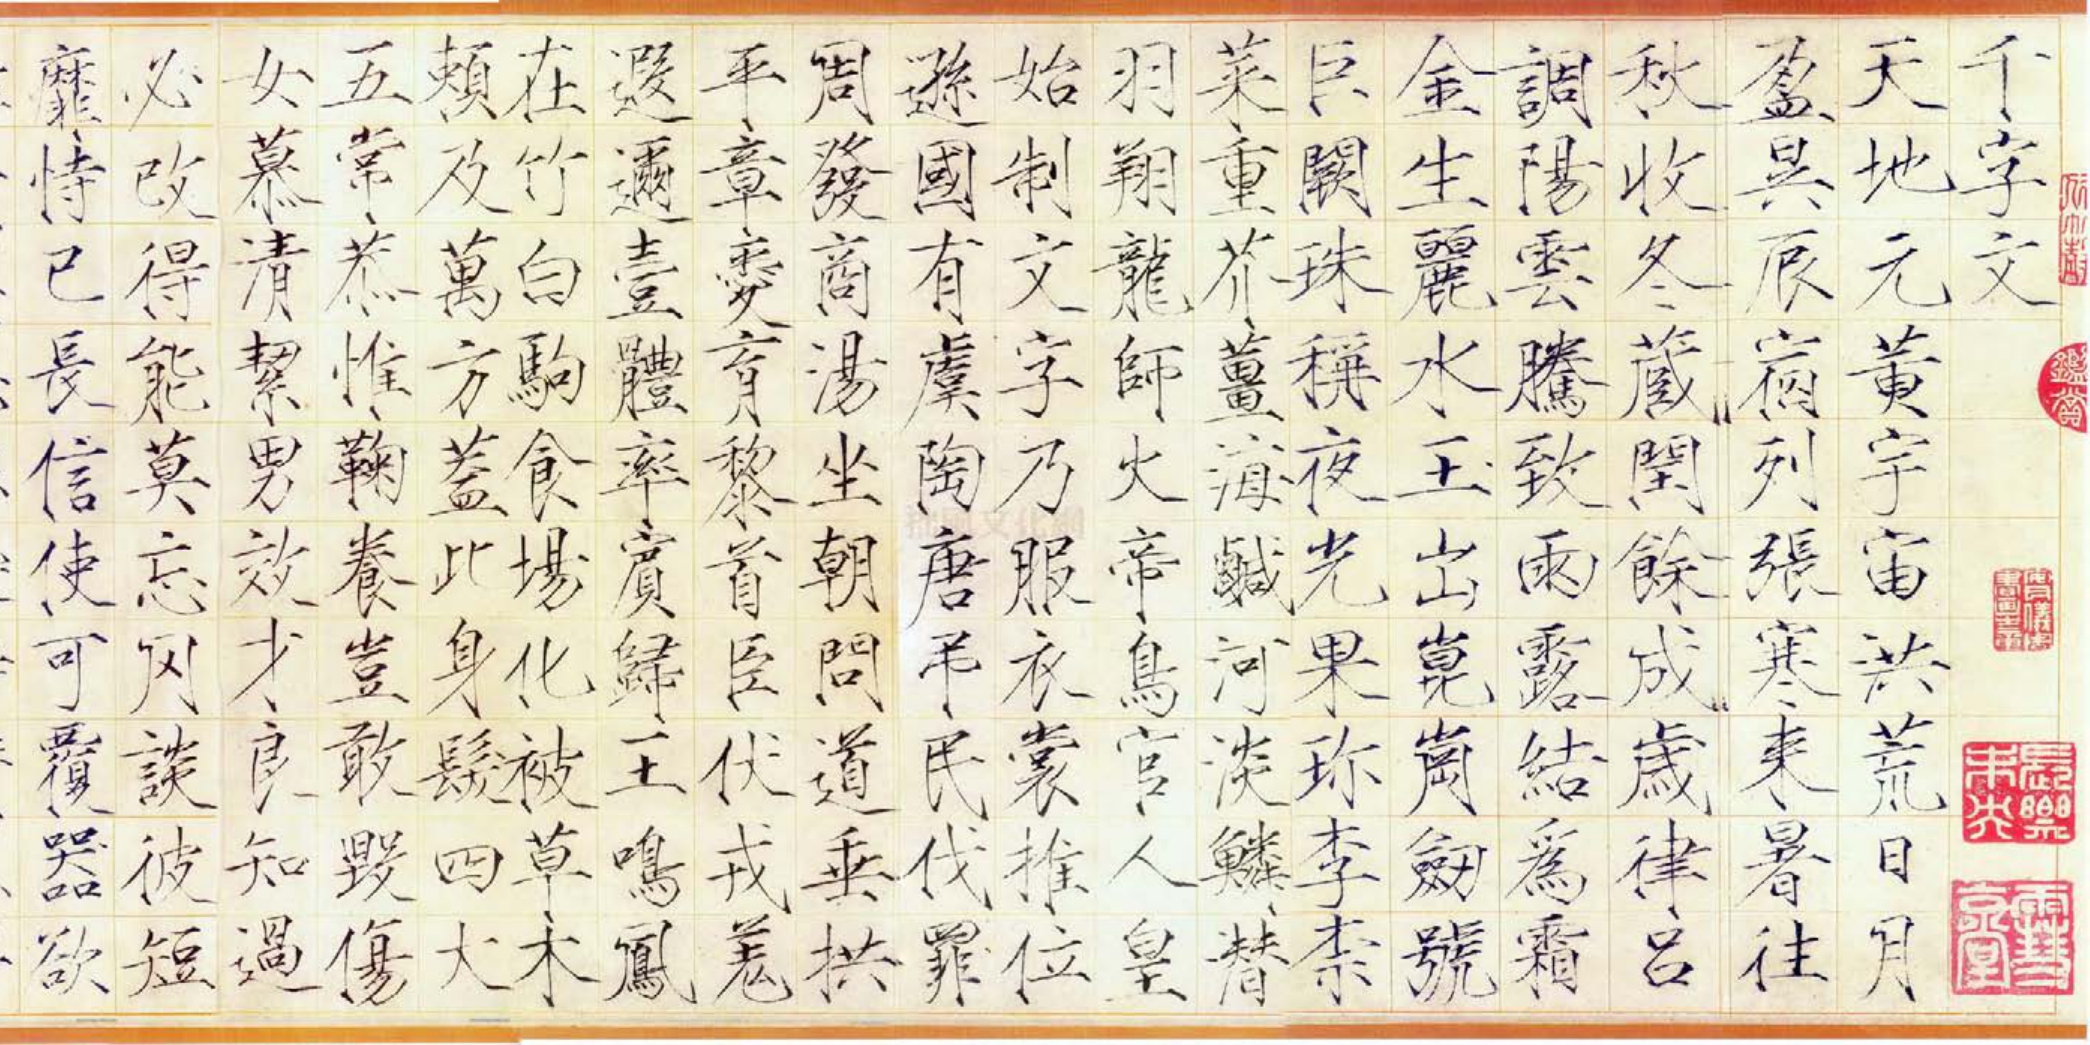 千字文
天地元黃宇宙洪荒日月
盈昃辰宿列張寒来暑往
秋收冬蔵閏餘成歲律呂
調陽雲騰致雨露結為霜
金生麗水玉出崑崗劒號
巨闕珠稱夜光果珎李柰
菜重芥薑海鹹河淡鱗潛
羽翔龍師火帝鳥官人皇
始制文字乃服衣裳推位
遜國有虞陶唐弔民伐罪
周發商湯坐朝問道垂拱
平章愛育黎首臣伏戎羌
遐邇壹體率賓歸王鳴鳳
在竹白駒食場化被草木
賴及萬方蓋此身髮四大
五常恭惟鞠養豈敢毀傷
女慕清絜男效才良知過
必改得能莫忘罔談彼短
靡恃己長信使可覆器欲